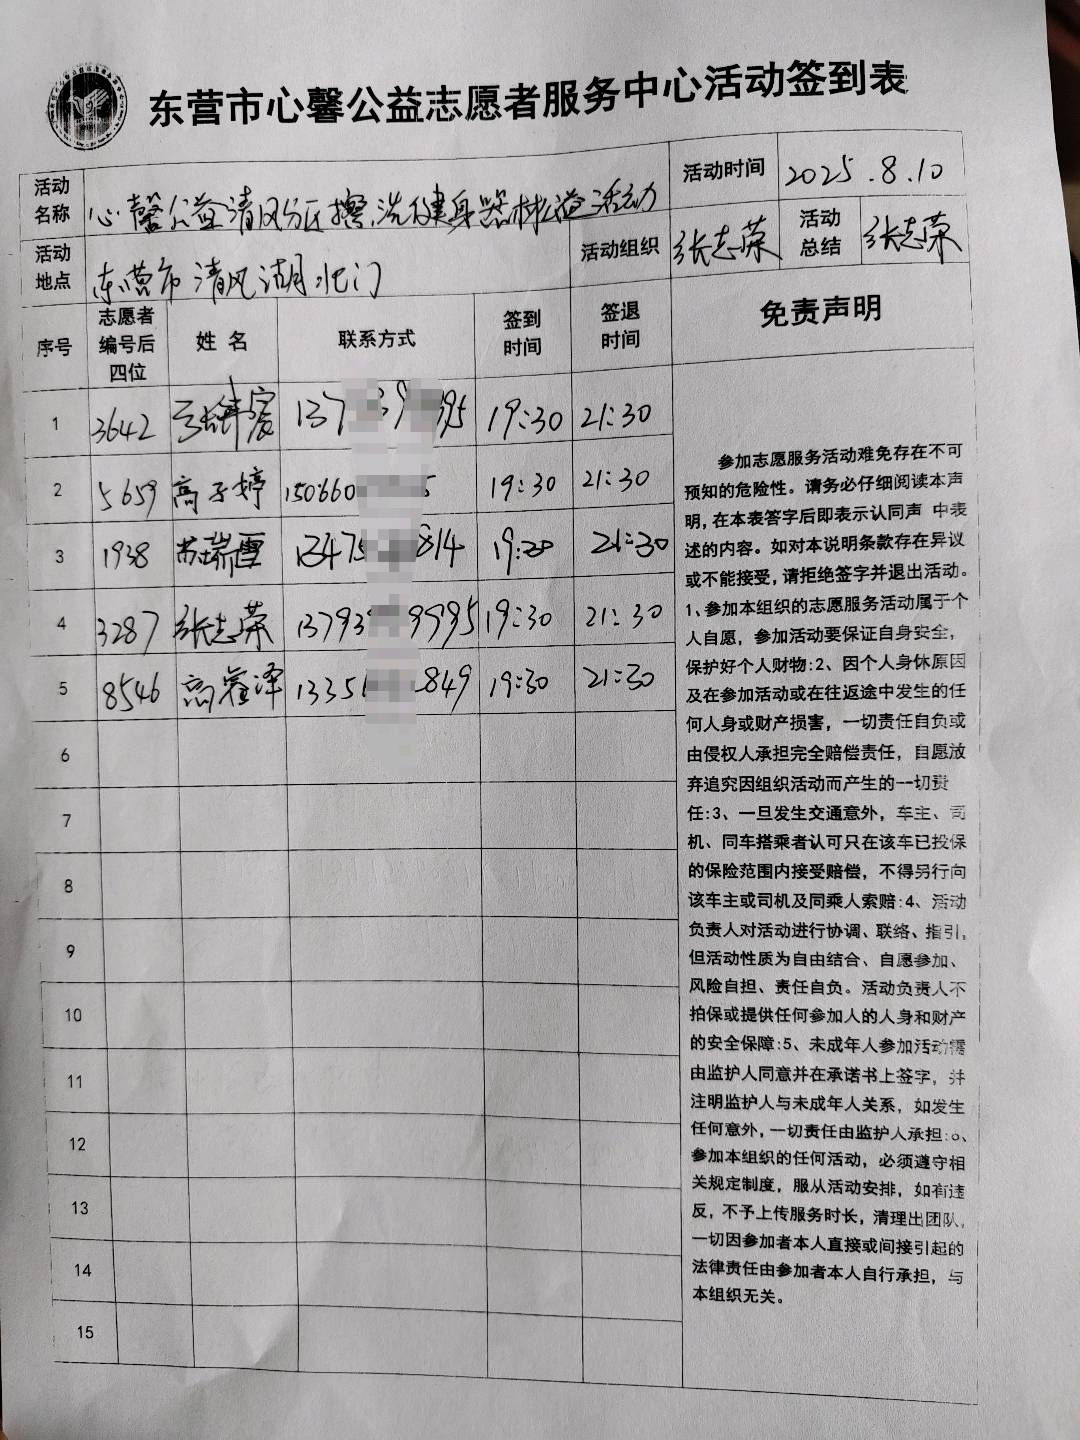 东营市心馨公益志愿者服务中心活动签到表
活动名称 心馨公益清风分区擦洗健身器材公益活动 活动时间 2025.8.10
活动地点 东营市清风湖北门 活动组织 张志荣 活动总结 张志荣
序号 志愿者编号后四位 姓名 联系方式 签到时间 签退时间 免责声明
1 3642 137 39 395 19:30 21:30
2 5659 高子婷 150660 5 19:30 21:30
3 1938 苏瑞雪 13475 814 19:30 21:30
4 3287 张志荣 13793 9995 19:30 21:30
5 8546 高 泽 1335 849 19:30 21:30
6
7
8
9
10
11
12
13
14
15
参加志愿服务活动难免存在不可
预知的危险性。请务必仔细阅读本声
明,在本表答字后即表示认同声 中表
述的内容。如对本说明条款存在异议
或不能接受,请拒绝签字并退出活动。
1、参加本组织的志愿服务活动属于个
人自愿,参加活动要保证自身安全,
保护好个人财物:2、因个人身休原因
及在参加活动或在往返途中发生的任
何人身或财产损害,一切责任自负或
由侵权人承担完全赔偿责任,自愿放
弃追究因组织活动而产生的一切责
任:3、一旦发生交通意外,车主、司
机、同车搭乘者认可只在该车已投保
的保险范围内接受赔偿,不得另行向
该车主或司机及同乘人索赔:4、活动
负责人对活动进行协调、联络、指引,
但活动性质为自由结合、自愿参加、
风险自担、责任自负。活动负责人不
拍保或提供任何参加人的人身和财产
的安全保障:5、未成年人参加活动需
由监护人同意并在承诺书上签字,并
注明监护人与未成年人关系,如发生
任何意外,一切责任由监护人承担:6、
参加本组织的任何活动,必须遵守相
关规定制度,服从活动安排,如有违
反,不予上传服务时长,清理出团队,
一切因参加者本人直接或间接引起的
法律责任由参加者本人自行承担,与
本组织无关。